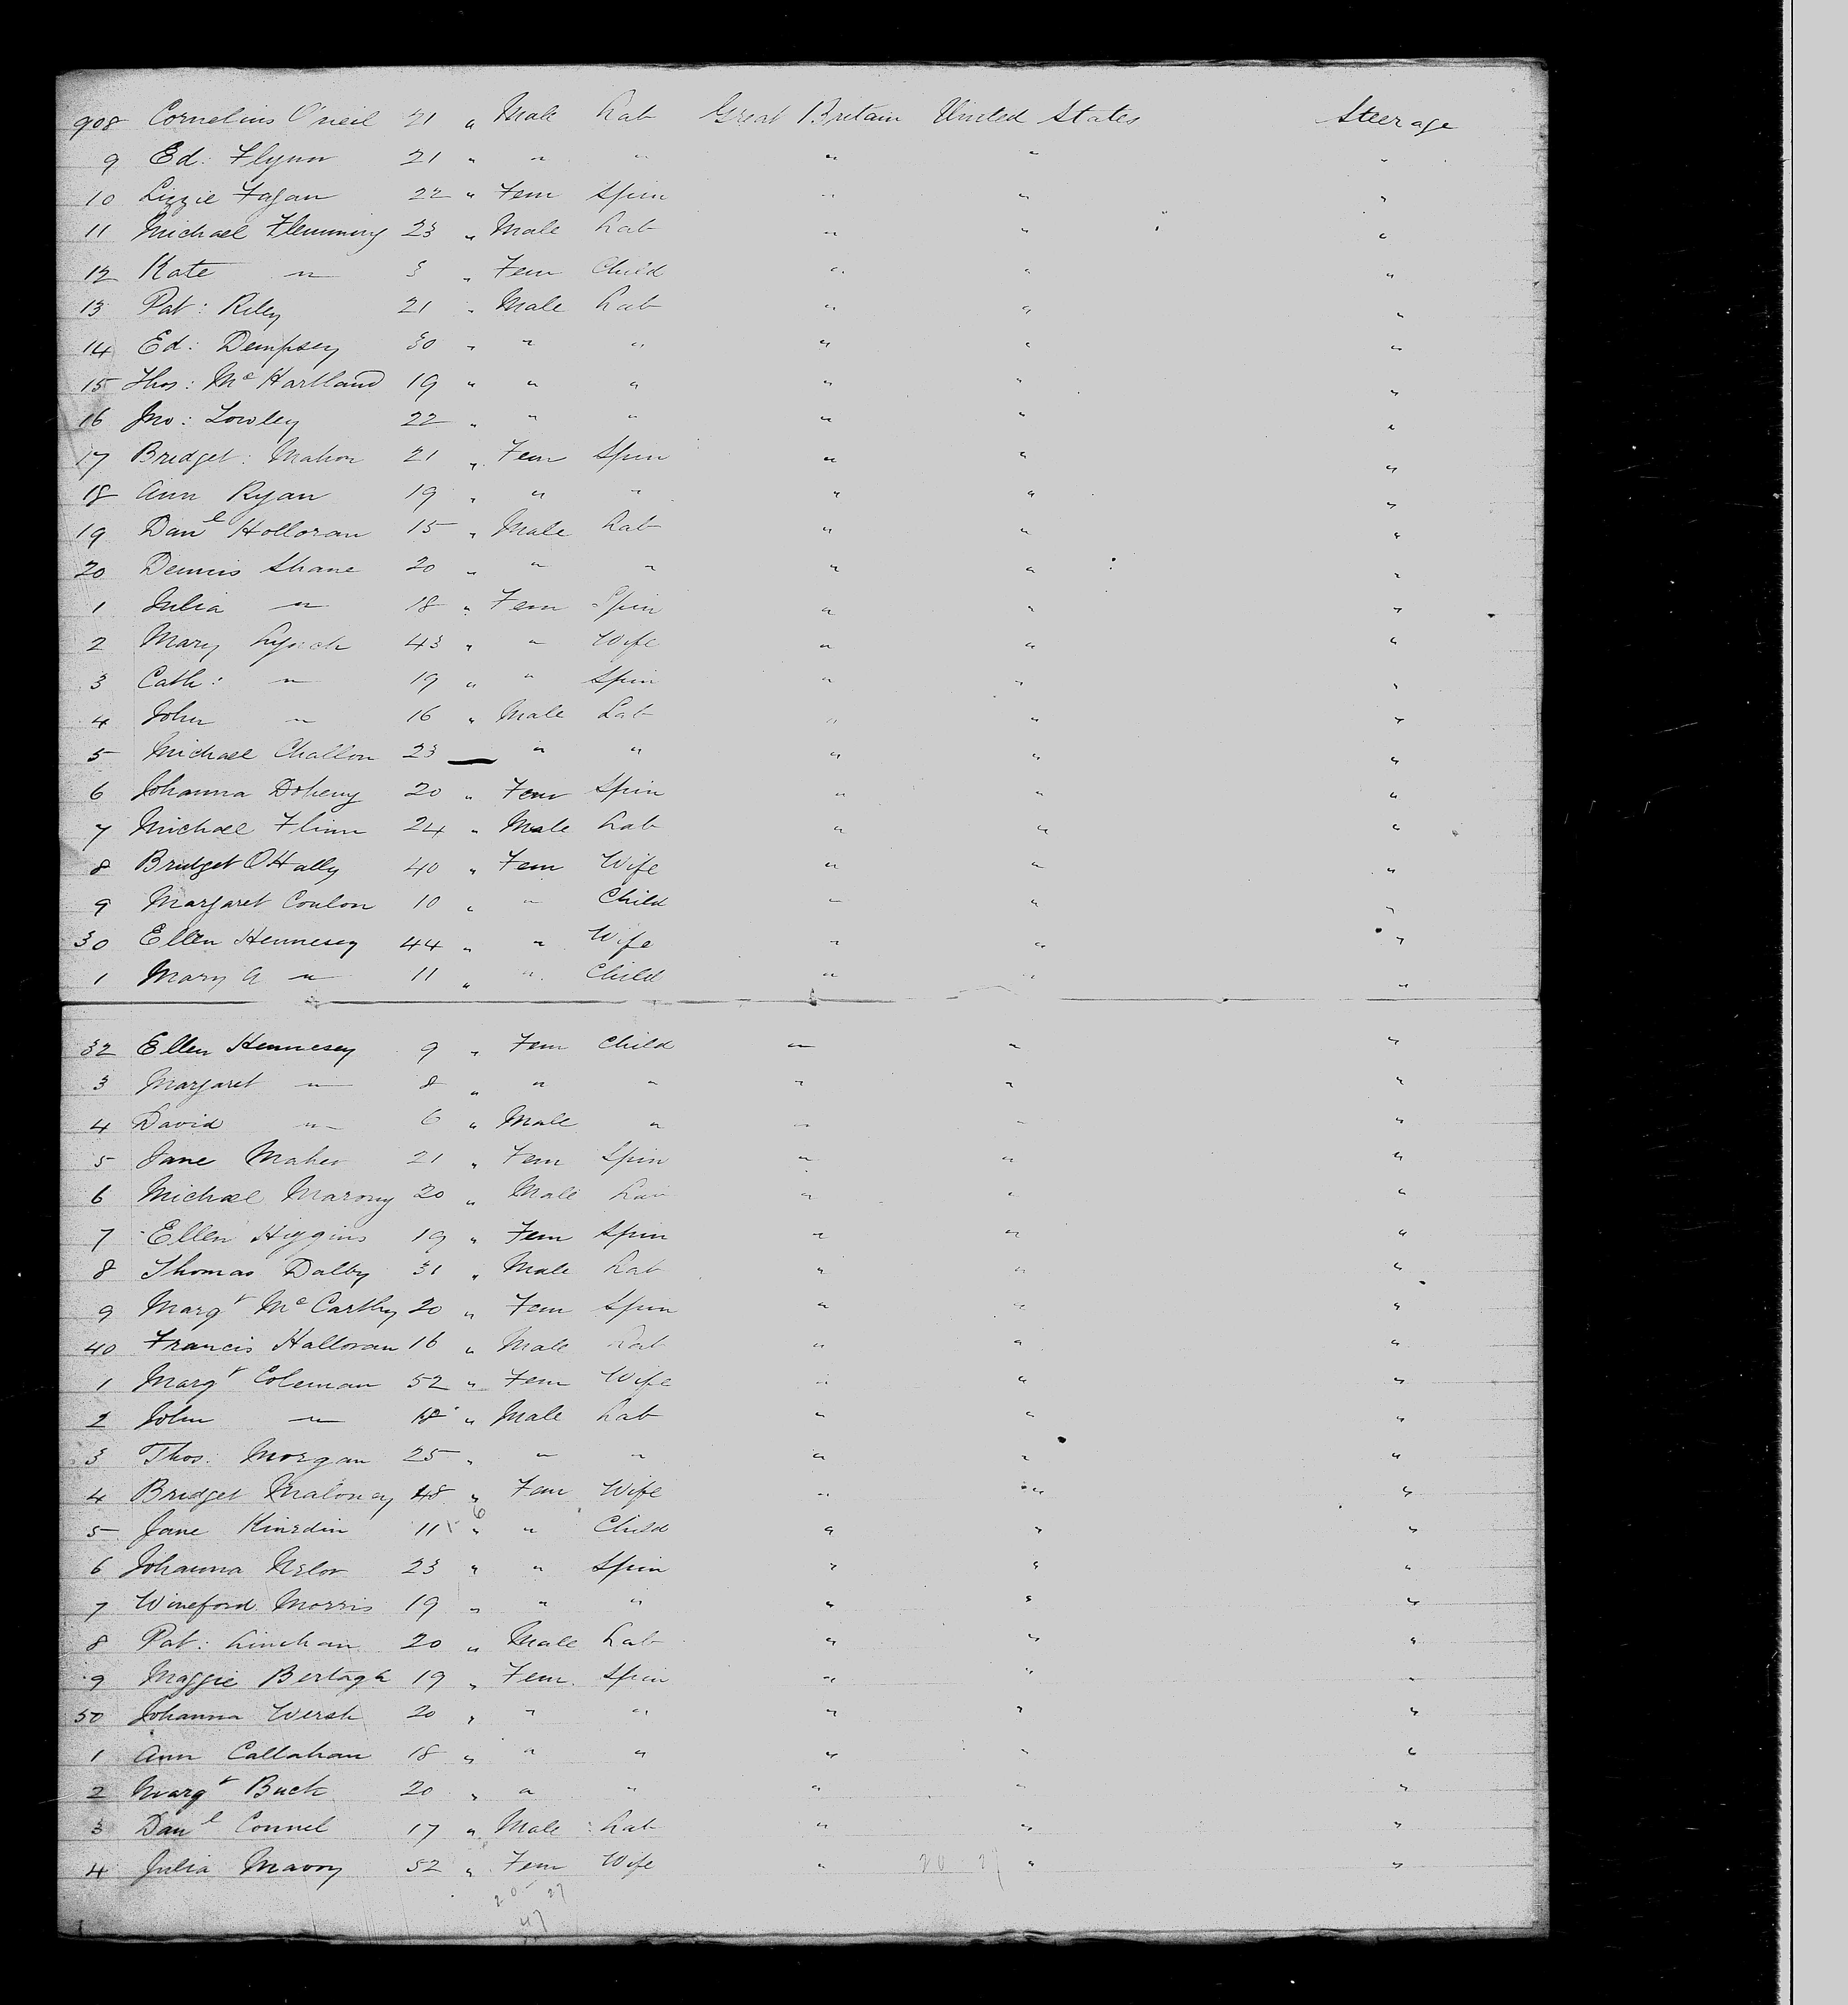 908 Cornelius O'neil 21 " Male Lab Great Britain United States Steerage
9 Ed: Flynn 21 " " " " " "
10 Lizzie Fagan 22 " Fem Spin " " "
11 Michael Flemming 23 " Male Lab " " "
12 Kate " 3 " Fem Child " " "
13 Pat: Riley 21 " Male Lab " " "
14 Ed: Dempsey 30 " " " " " "
15 Thos: Mc Hartland 19 " " " " " "
16 Jno: Lowley 22 " " " " " "
17 Bridget: Mahon 21 " Fem Spin " " "
18 Ann Ryan 19 " " " " " "
19 Danl Holloran 15 " Male Lab " " "
20 Dennis Shane 20 " " " " " "
1 Julia " 18 " Fem Spin " " "
2 Mary Lynch 43 " " Wife " " "
3 Cath: " 19 " " Spin " " "
4 John " 16 " Male Lab " " "
5 Michael Challon 23 — " " " " "
6 Johanna Doheny 20 " Fem Spin " " "
7 Michael Flinn 24 " Male Lab " " "
8 Bridget OHally 40 " Fem Wife " " "
9 Margaret Conlon 10 " " Child " " "
30 Ellen Hennesey 44 " " Wife " " "
1 Mary A " 11 " " Child " " "
32 Ellen Hennesey 9 " Fem Child " " "
3 Margaret " 8 " " " " " "
4 David " 6 " Male " " " "
5 Jane Maher 21 " Fem Spin " " "
6 Michael Marony 20 " Male Lab " " "
7 Ellen Higgins 19 " Fem Spin " " "
8 Thomas Dalby 31 " Male Lab " " "
9 Margt McCarthy 20 " Fem Spin " " "
40 Francis Halloran 16 " Male Lab " " "
1 Margt Coleman 52 " Fem Wife " " "
2 John " 18 " Male Lab " " "
3 Thos: Morgan 25 " " " " " "
4 Bridget Maloney 48 " Fem Wife " " "
5 Jane 11 6 " " Child " " "
6 Johanna 23 " " Spin " " "
7 Wineford Morris 19 " " " " " "
8 Pat: Linehan 20 " Male Lab " " "
9 Maggie Bertagh 19 " Fem Spin " " "
50 Johanna 20 " " " " " "
1 Ann Callahan 18 " " " " " "
2 Margt Buck 20 " " " " " "
3 Danl Connel 17 " Male Lab " " "
4 Julia Mavoy 52 " Fem Wife " 20 27 " "
20 27
47